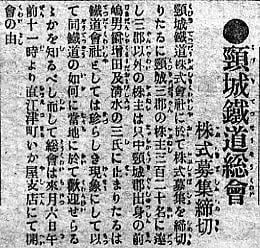 ●頸城鐵道總會
株式募集締切
頸城鐵道株式會社に於て株式募集を締切
りたるに頸城三郡の株主三百二十名に達
し三郡以外の株主は只中頸城郡出身の前
島男爵増田及清水の三氏に止まりたるは
鐵道會社としては珍らしき現象にして以
て同鐵道の如何に當地に於て歡迎せらる
ゝかを知るべし而して總會は來月六日午
前十一時より直江津町いか屋支店にて開
會の由